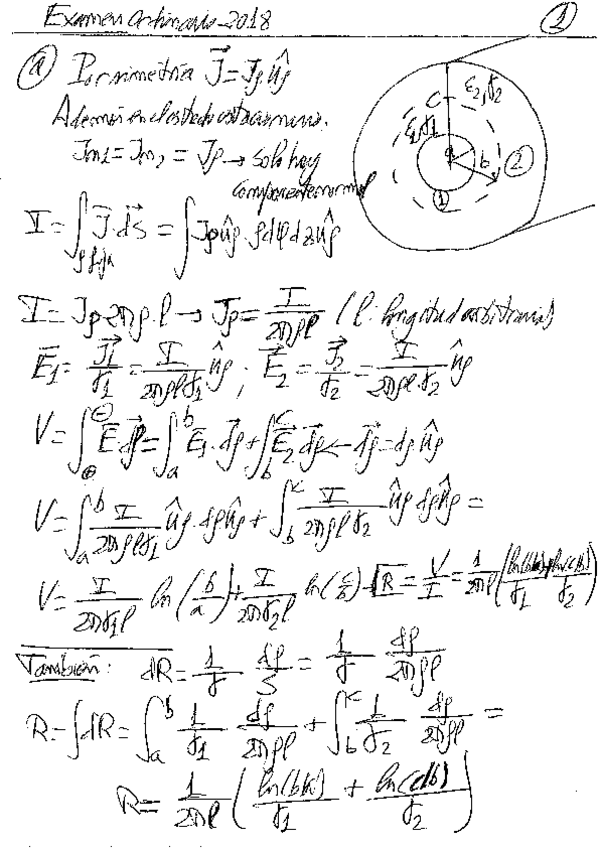 Examen ordinario 2018
1
a) Por simetría J⃗ = Jρ ûρ
Además en el estado estacionario.
Jn1 = Jn2 = Jρ → solo hay
componente normal
c ε2, γ2
ε1, γ1
a b 2
1
I = ∫ J⃗·dS⃗ = ∫ Jρ ûρ · ρ dφ dz ûρ
ρ fija
I = Jρ 2πρ·l → Jρ = I/(2πρl) (l: longitud arbitraria)
E⃗1 = J⃗1/γ1 = I/(2πρlγ1) ûρ ; E⃗2 = J⃗2/γ2 = I/(2πρl·γ2) ûρ
V = ∫⊕⊖ E⃗·dρ⃗ = ∫a^b E⃗1·dρ⃗ + ∫b^c E⃗2·dρ⃗ ← dρ⃗ = dρ ûρ
V = ∫a^b I/(2πρlγ1) ûρ·dρ ûρ + ∫b^c I/(2πρlγ2) ûρ dρ ûρ =
V = I/(2πγ1l) ln(b/a) + I/(2πγ2l) ln(c/b) → R = V/I = 1/(2πl) (ln(b/a)/γ1 + ln(c/b)/γ2)
También: dR = 1/γ dρ/S = 1/γ dρ/(2πρl)
R = ∫dR = ∫a^b 1/γ1 dρ/(2πρl) + ∫b^c 1/γ2 dρ/(2πρl) =
R = 1/(2πl) (ln(b/a)/γ1 + ln(c/b)/γ2)